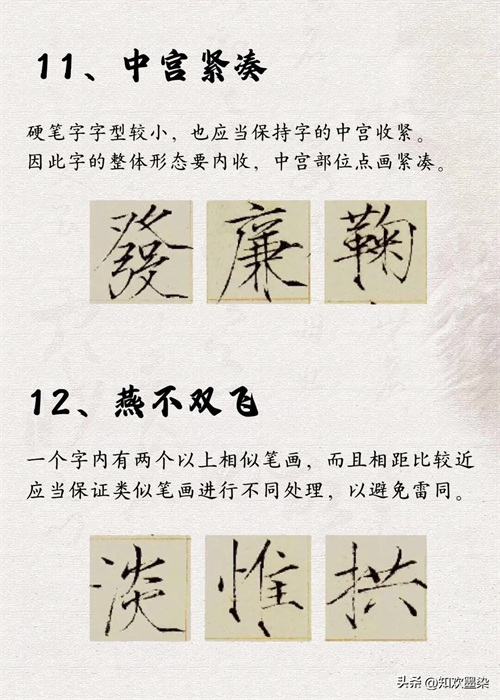 11、中宫紧凑
硬笔字字型较小，也应当保持字的中宫收紧。
因此字的整体形态要内收，中宫部位点画紧凑。
發 廉 鞠
12、燕不双飞
一个字内有两个以上相似笔画，而且相距比较近
应当保证类似笔画进行不同处理，以避免雷同。
淡 惟 拱
头条 @知欢墨染